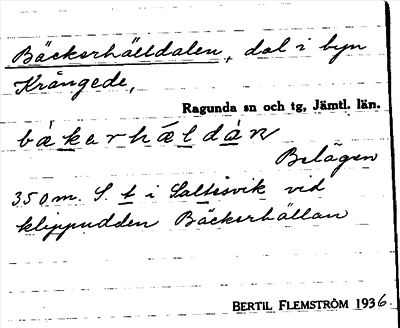 Bäckerhälldalen, dal i byn
Krångede,
Ragunda sn och tg, Jämtl. län.
bäkerhældàn
Belägen
350 m. S. t i Saltisvik vid
klippudden Bäckerhällan
BERTIL FLEMSTRÖM 1936.